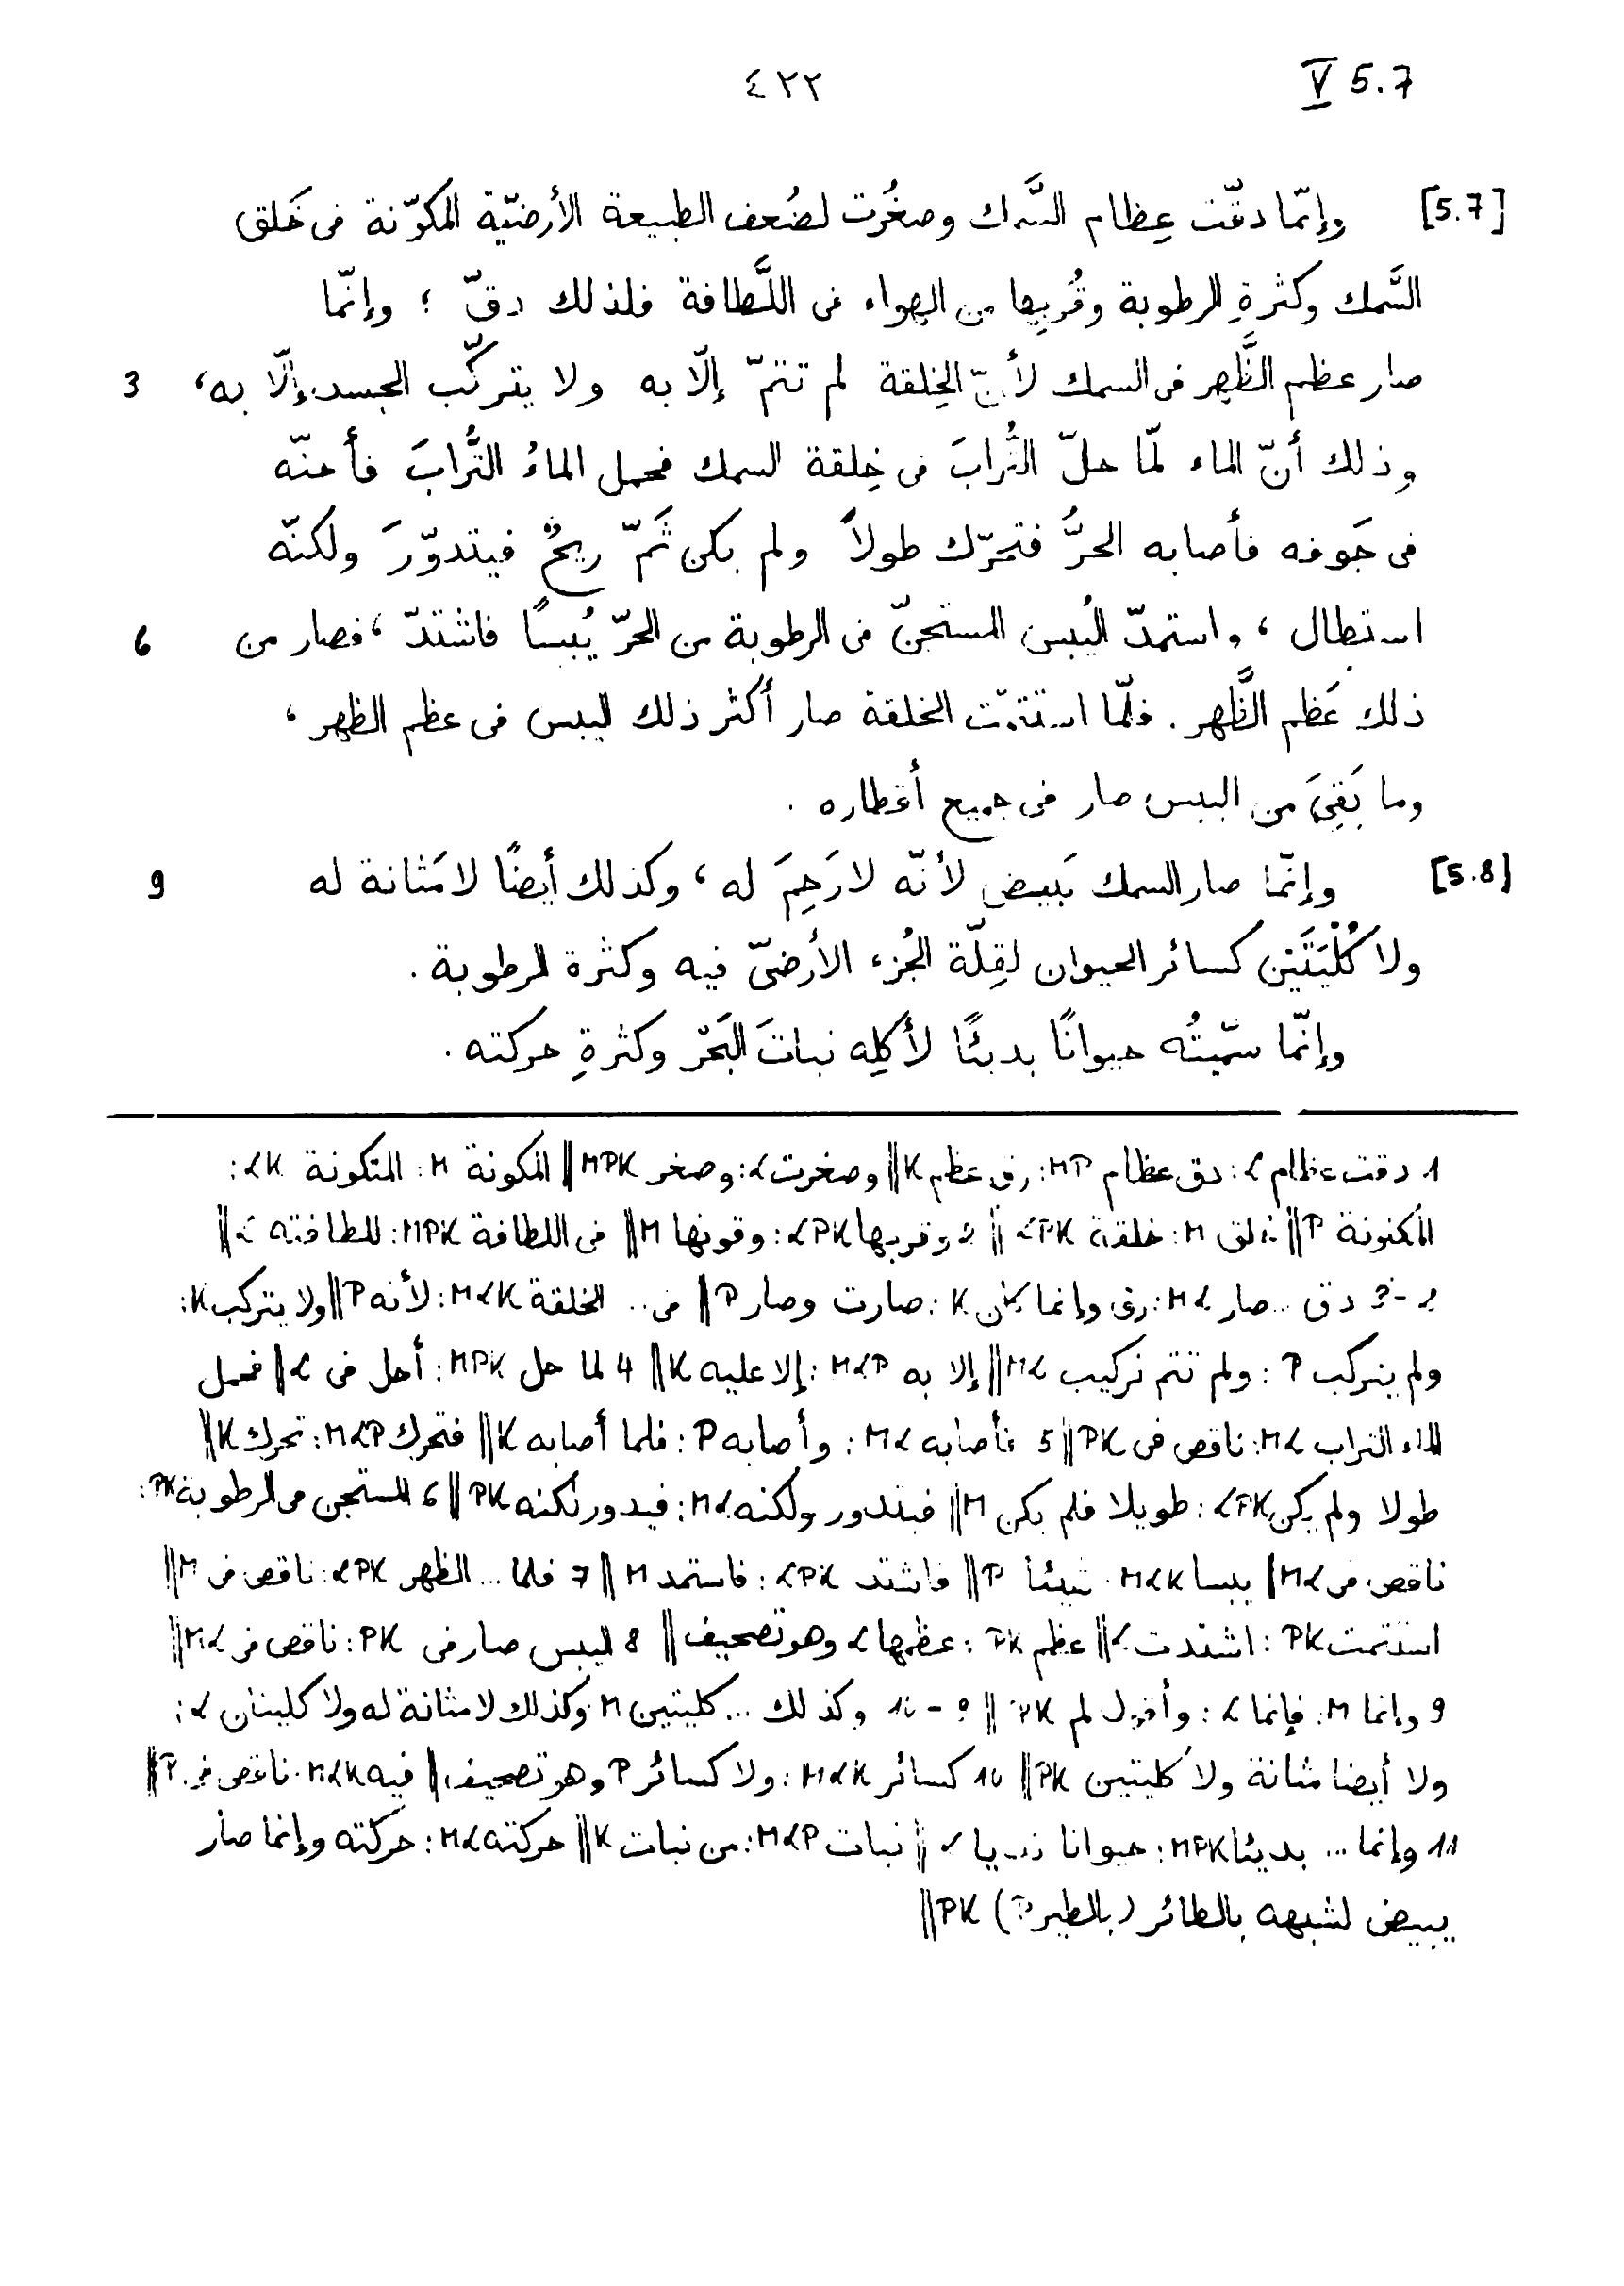 ٤٢٢ V 5.7
[5.7] وإنّما دقّت عِظام السَّمك وصغُرت لضُعف الطبيعة الأرضيّة المكوّنة فى خَلق
السَّمك وكثرةِ الرطوبة وقُربِها من الهواء فى اللَّطافة فلذلك دقّ ؛ وإنّما
3 صار عظم الظَّهر فى السمك لأنّ الخِلقة لم تتمّ إلّا به ولا يتركّب الجسد إلّا به،
وذلك أنّ الماء لمّا حلّ التُّرابَ فى خِلقة السمك فحمل الماءُ التُّرابَ فأجنّه
فى جَوفه فأصابه الحرُّ فتحرّك طولاً ولم يكن ثَمّ ريحٌ فيتدوّرَ ولكنّه
6 استطال، واستمدّ اليُبس المستجنّ فى الرطوبة من الحرّ يُبسًا فاشتدّ، فصار من
ذلك عَظم الظَّهر. فلمّا استتمّت الخلقة صار أكثر ذلك اليبس فى عظم الظهر،
وما بَقِىَ من اليبس صار فى جميع أقطاره .
9 [5.8] وإنّما صار السمك يَبيض لأنّه لا رَحِمَ له، وكذلك أيضًا لا مَثانة له
ولا كُلْيَتَيْن كسائر الحيوان لقِلّة الجُزء الأرضىّ فيه وكثرة الرطوبة .
وإنّما سمّيتُه حيوانًا بديئًا لأكلِه نباتَ البَحْر وكثرةِ حركته .
1 دقت عظام L: دق عظام MP: رق عظم K|| وصغرت L: وصغر MPK|| المكونة M: المتكونة LK:
المكنونة P|| خلق M: خلقة LPK|| 2 وقربها LPK: وقونها M|| فى اللطافة MPK: للطافته L||
2-3 دق ... صار ML: رق وإنما يكن K: صارت وصار P|| فى .. الخلقة MLK: لأنه P|| ولا يتركب K:
ولم يتركب P: ولم تتم تركيب ML|| إلا به MLP: إلا عليه K|| 4 لما حل MPK: أحل فى L|| فحمل
الماء التراب ML: ناقص فى PK|| 5 فأصابه ML: وأصابه P: فلما أصابه K|| فتحرك MLP: تحرك K||
طولا ولم يكن LPK: طويلا فلم يكن M|| فيتدور ولكنه ML: فيدور لكنه PK|| 6 المستجن فى الرطوبة PK:
ناقص فى ML|| يبسا MLK: شيئا P|| فاشتد LPK: فاستمد M|| 7 فلما ... الظهر LPK: ناقص فى M||
استتمت PK: اشتدت L|| عظم PK: عظمها L وهو تصحيف || 8 اليبس صار فى PK: ناقص فى ML||
9 وإنما M: فإنما L: وأقول لم PK|| 9-10 وكذلك ... كليتين M: وكذلك لا مثانة له ولا كليتان L:
ولا أيضا مثانة ولا كليتين PK|| 10 كسائر MLK: ولا كسائر P وهو تصحيف || فيه MLK: ناقص فى P||
11 وإنما ... بديئا MPK: حيوانا L|| نبات MLP: من نبات K|| حركته ML: حركته وإنما صار
يبيض لشبهه بالطائر (بالطير P) PK||